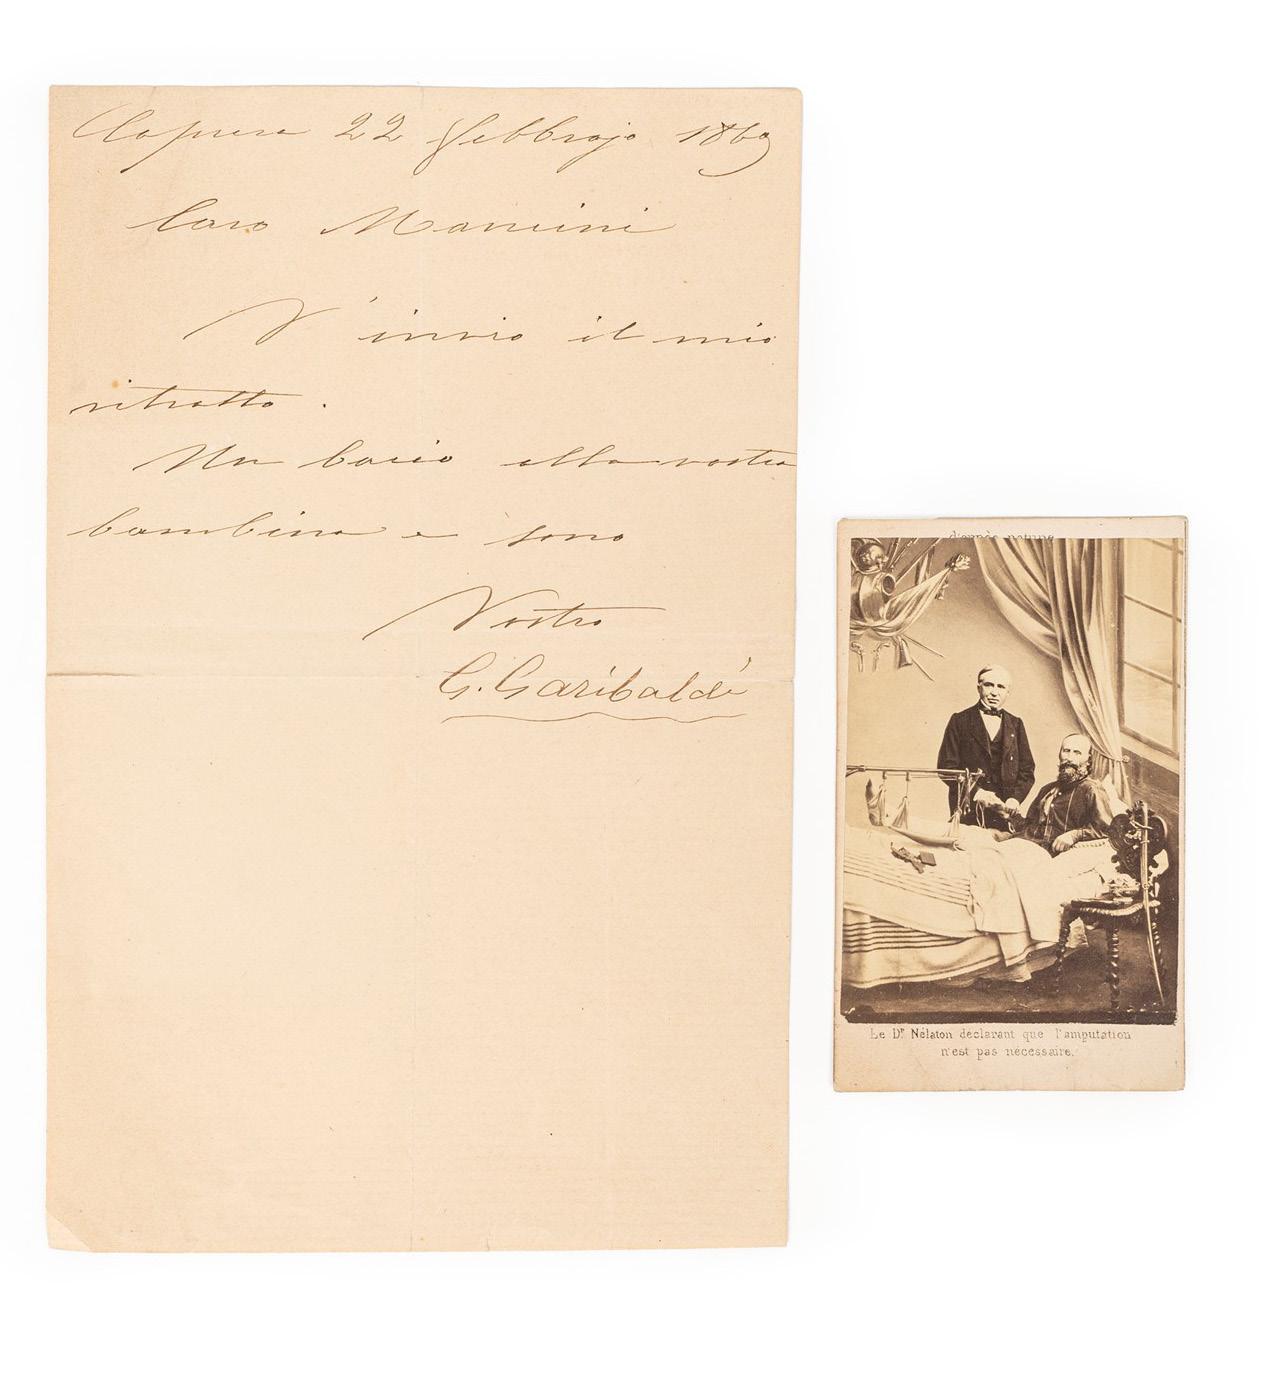 Caprera 22 febbrajo 1869
Caro Mancini
V'invio il mio
ritratto.
Un bacio alla vostra
bambina e sono
Vostro
G. Garibaldi
d'après nature
Le Dr. Nélaton déclarant que l'amputation
n'est pas nécessaire.